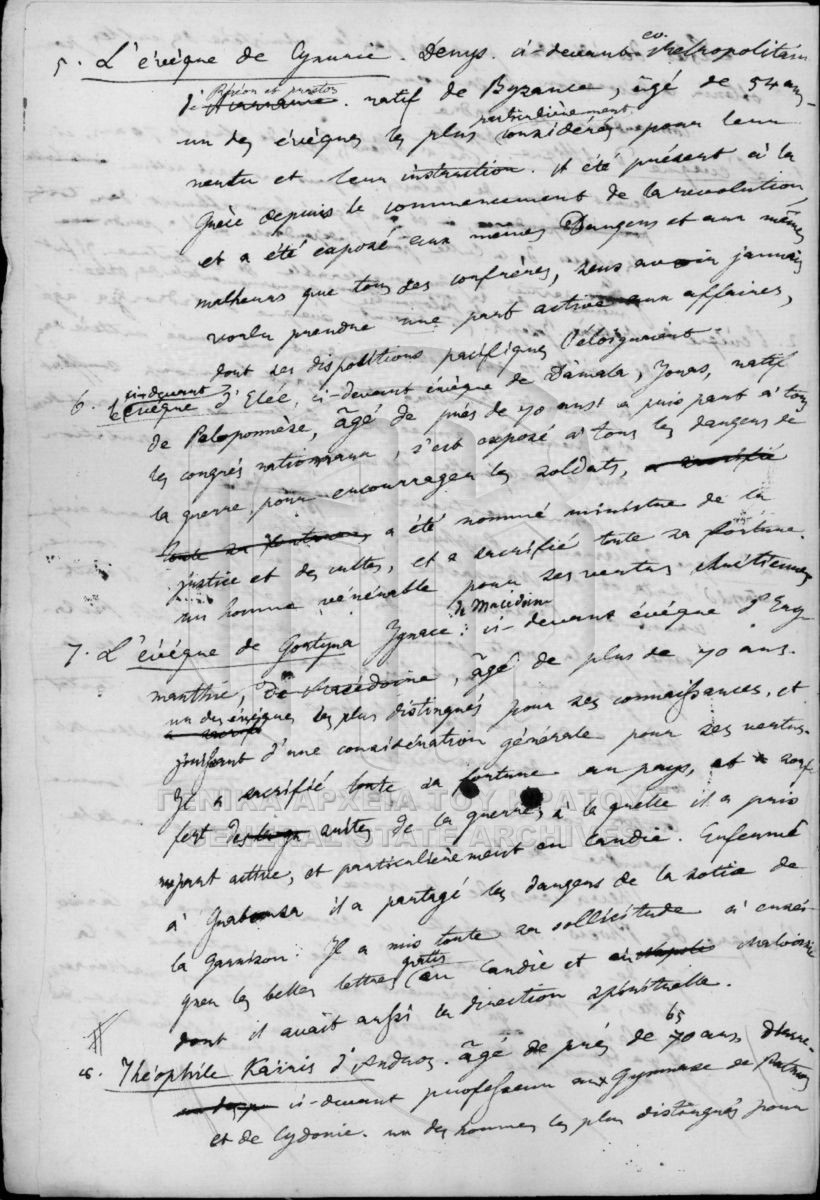 5. L'évêque de Cynurie. Denys. ci-devant Metropolitain
Réon et prastos
natif de Byzance, âgé de 54 ans
particulièrement
un des évêques les plus considérés pour leur
vertu et leur instruction. Il été présent à la
Grèce depuis le commencement de la revolution,
et a été exposé aux mêmes Dangers et aux mêmes
malheurs que tous ses confrères, sans avoir jamais
voulu prendre une part active aux affaires,
dont ses dispositions pacifiques l'éloignaient
6. évêque d'Elée, ci-devant évêque de Damala, Jonas, natif
de Peloponnèse, âgé de près de 70 ans a pris part à tous
les congrès nationaux, s'est exposé à tous les dangers de
la guerre pour encourager les soldats, a sacrifié
toute sa fortune, a été nommé ministre de la
justice et des cultes, et a sacrifié toute sa fortune.
un homme vénérable pour ses vertus chrétiennes
de Macédoine
7. L'évêque de Gortyna Ignace: ci-devant évêque d'Ery-
manthie, de Macédoine, âgé de plus de 70 ans.
un des évêques les plus distingués pour ses connaissances, et
jouissant d'une considération générale pour ses vertus.
Il a sacrifié toute sa fortune au pays, et souf-
fert des suites de la guerre, à laquelle il a pris
part active, et particulièrement en Candie. Enfermé
à Grabousa il a partagé les dangers de la
la garnison: Il a mis toute sa sollicitude à ensei-
gner les belles lettres gratis en Candie et Malvoisie
dont il avait aussi la direction spirituelle.
65
8. Théophile Kaïris d'Andros. âgé de près de 70 ans
ci-devant professeur aux Gymnase de
et de Cydonie. un des hommes les plus distingués pour
ΓΕΝΙΚΑ ΑΡΧΕΙΑ ΤΟΥ ΚΡΑΤΟΥΣ
GENERAL STATE ARCHIVES